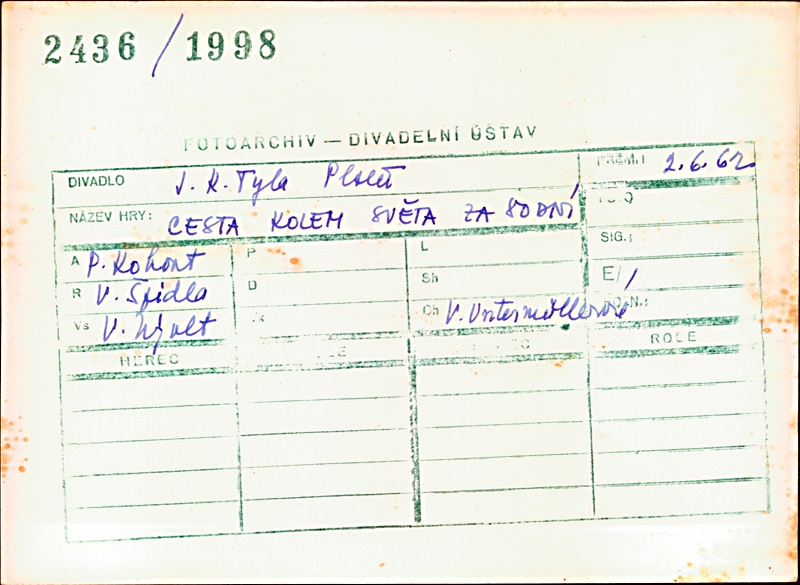 2436/1998
FOTOARCHIV — DIVADELNÍ ÚSTAV
DIVADLO J. K. Tyla Plzeň PREM.: 2.6.62
NÁZEV HRY: CESTA KOLEM SVĚTA ZA 80 DNÍ
A P. Kohout P L SIG.:
R V. Špidla D Sh E/1
Vs V. Ch V. Untermüllerová
HEREC ROLE